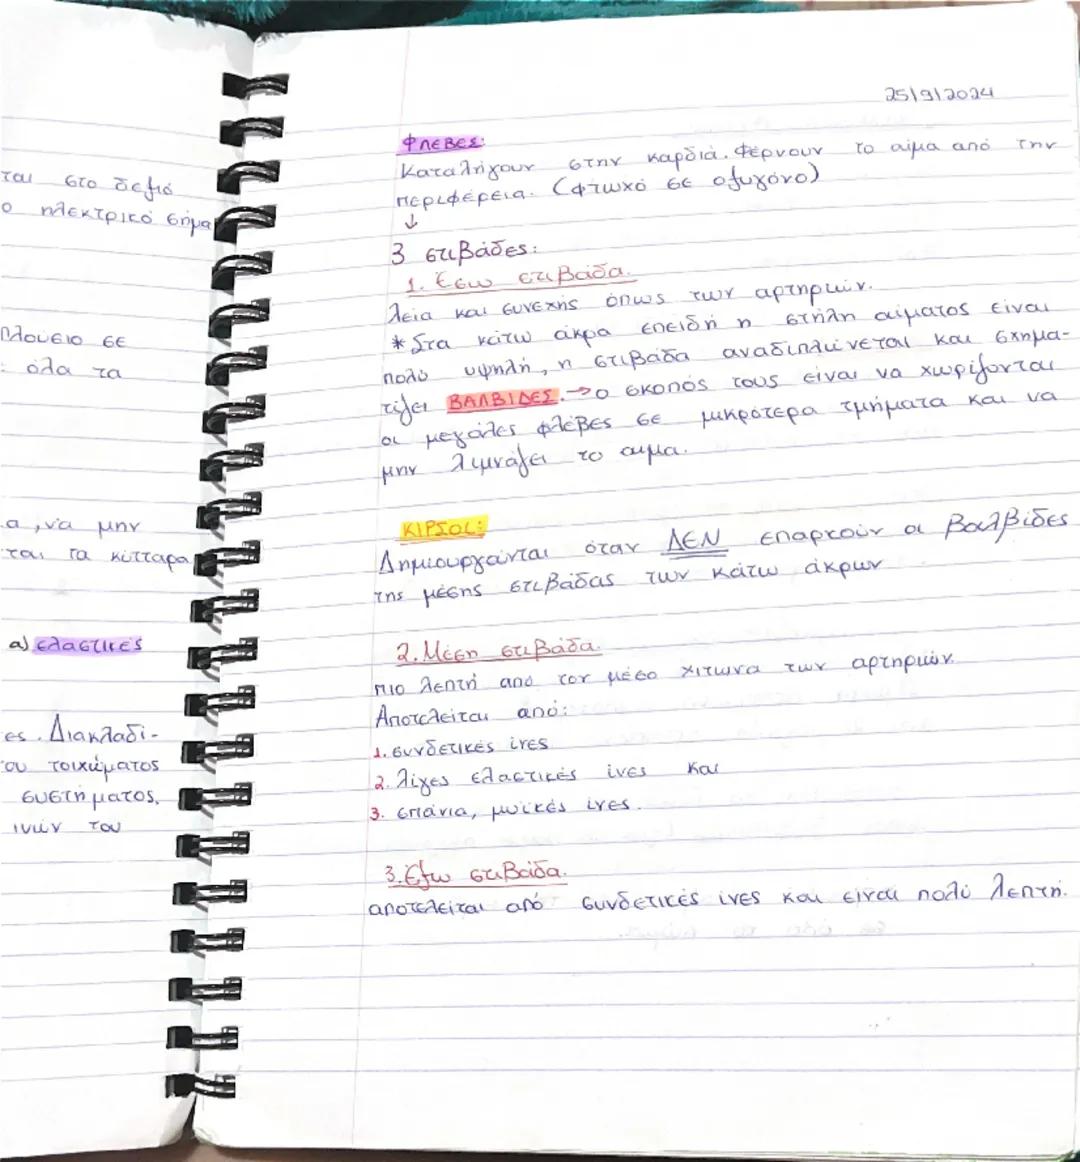 ται στο δεξιό
ο ηλεκτρικό σήμα
πλούσιο σε
όλα τα
α, να μην
ται τα κύτταρα
α) ελαστικές
ες. Διακλαδί-
ου τοιχώματος
συστήματος,
ινών του
25/9/2024
ΦΛΕΒΕΣ:
Καταλήγουν στην καρδιά. Φέρνουν το αίμα από την
περιφέρεια. (φτωχό σε οξυγόνο)
↓
3 στιβάδες:
1. Έσω στιβάδα.
λεία και συνεχής όπως των αρτηριών.
* Στα κάτω άκρα επειδή η στήλη αίματος είναι
πολύ υψηλή, η στιβάδα αναδιπλώνεται και σχημα-
τίζει ΒΑΛΒΙΔΕΣ. → ο σκοπός τους είναι να χωρίζονται
οι μεγάλες φλέβες σε μικρότερα τμήματα και να
μην λιμνάζει το αιμα.
ΚΙΡΣΟΙ:
Δημιουργούνται όταν ΔΕΝ επαρκούν οι βαλβίδες
της μέσης στιβάδας των κάτω άκρων
2. Μέση στιβάδα.
πιο λεπτή από τον μέσο χιτωνα των αρτηριών.
Αποτελείται από:
1. συνδετικές ίνες
2. λίγες ελαστικές ίνες και
3. σπάνια, μυϊκές ίνες.
3. Έξω στιβάδα.
αποτελείται από συνδετικές ίνες και είναι πολύ λεπτή.